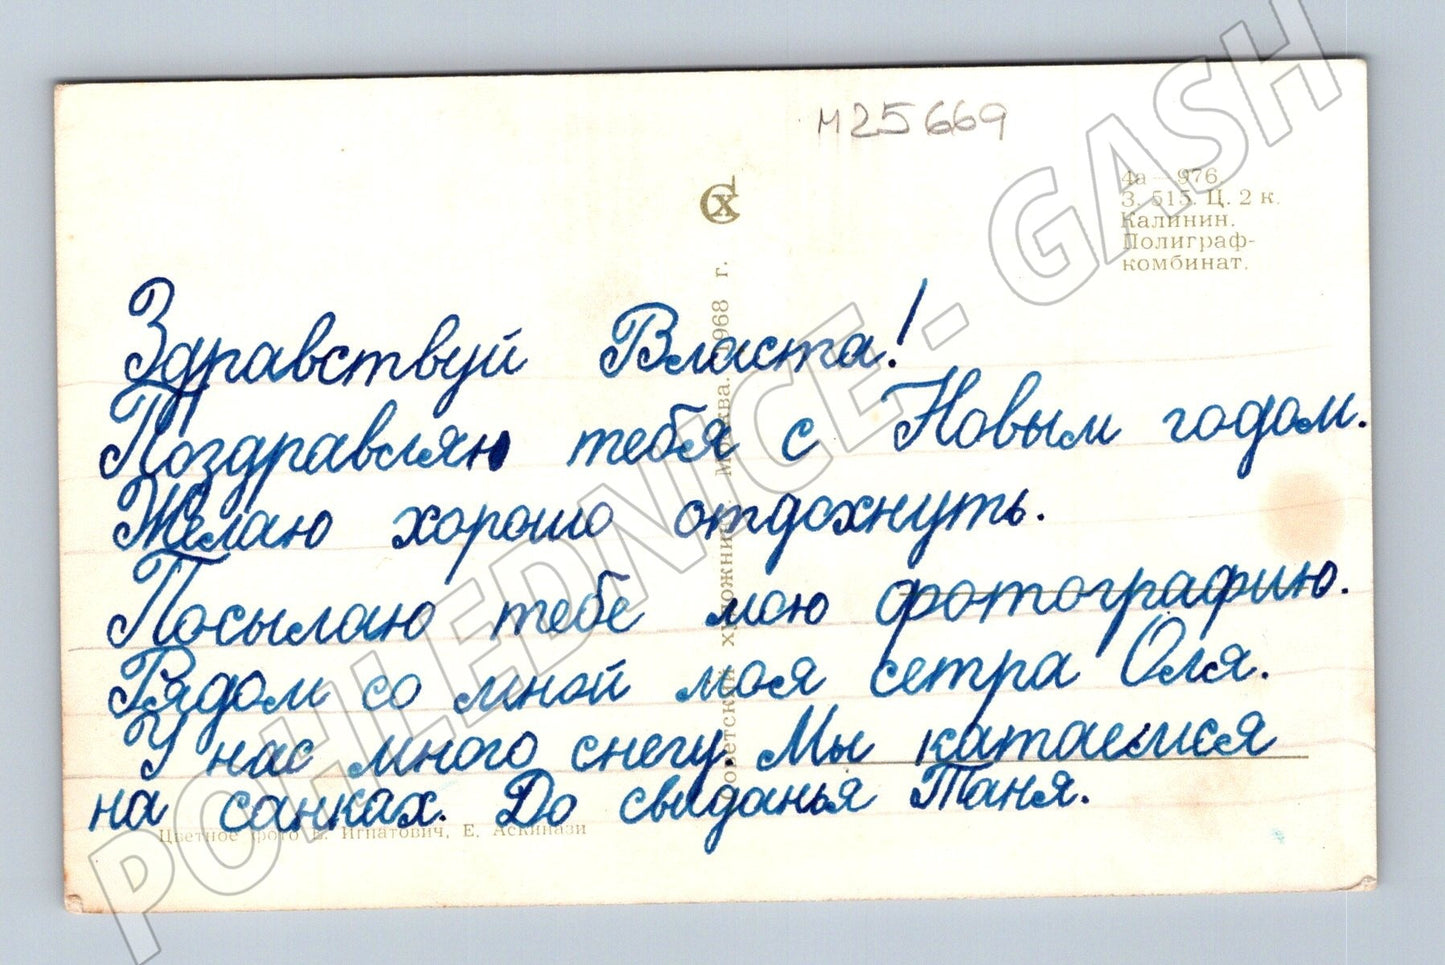 м25669
СХ
4а — 976.
З. 515. Ц. 2 к.
Калинин.
Полиграф-
комбинат.
Здравствуй Власта!
Поздравляю тебя с Новым годом.
Желаю хорошо отдохнуть.
Посылаю тебе мою фотографию.
Рядом со мной моя сетра Оля.
У нас много снегу. Мы катаемся
на санках. До свиданья Таня.
Советский художник. Москва. 1968 г.
Цветное фото Б. Игнатович, Е. Аскинази
POHLEDNICE - GASH